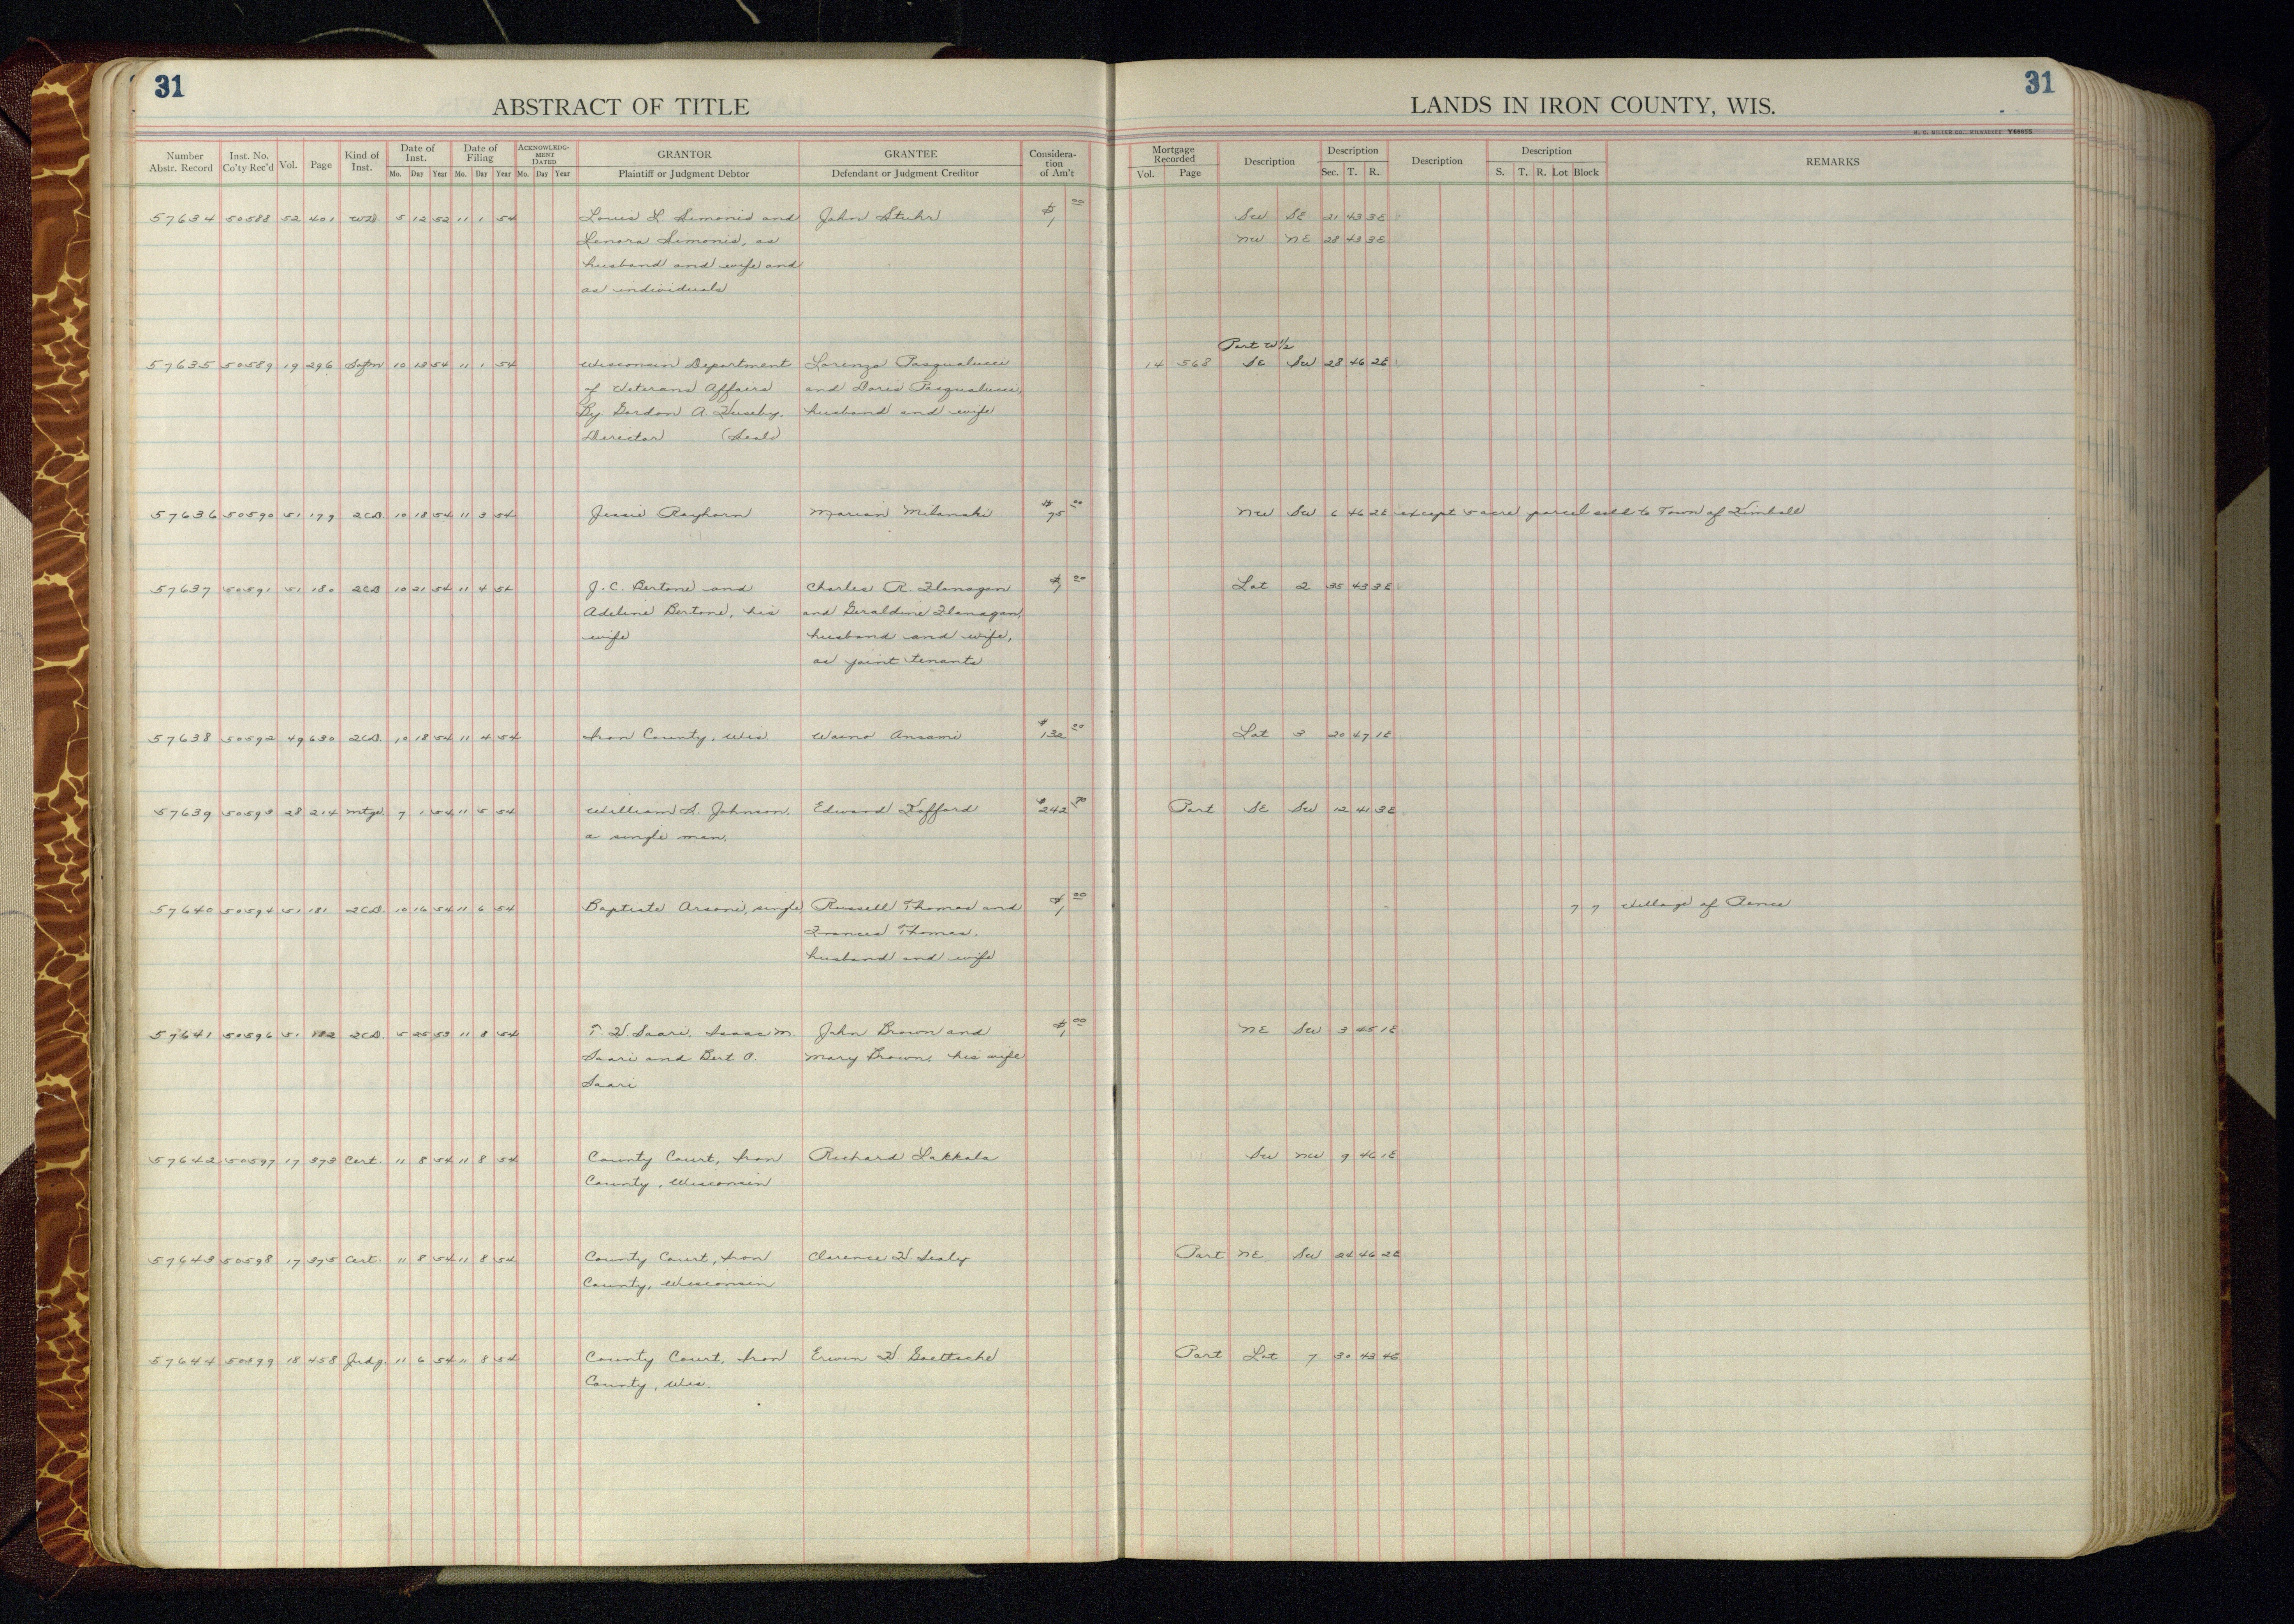 31
31
ABSTRACT OF TITLE
LANDS IN IRON COUNTY, WIS.
H. C. MILLER CO., MILWAUKEE Y66055
Number Abstr. Record Inst. No. Co'ty Rec'd Vol. Page Kind of Inst. Date of Inst. Mo. Day Year Date of Filing Mo. Day Year ACKNOWLEDGMENT DATED Mo. Day Year GRANTOR Plaintiff or Judgment Debtor GRANTEE Defendant or Judgment Creditor Consideration of Am't Mortgage Recorded Vol. Page Description Description Sec. T. R. Description Description S. T. R. Lot Block REMARKS
57634 50588 52 401 WD. 5 12 52 11 1 54 Louis L. Simonis and John Stuhr $1 00 SW SE 21 43 3E
Lenora Simonis, as NW NE 28 43 3E
husband and wife and
as individuals
Part W½
57635 50589 19 296 Satfn 10 13 54 11 1 54 Wisconsin Department Lorenzo Pasqualucci 14 568 SE SW 28 46 2E
of Veterans Affairs and Doris Pasqualucci,
By Gordon A. Huseby, husband and wife
Director (Seal)
57636 50590 51 179 2CD 10 18 54 11 3 54 Jessie Rayhorn Marian Milanski $75 00 NW SW 6 46 2E except 5 acre parcel sold to Town of Kimball
57637 50591 51 180 2CD 10 21 54 11 4 54 J. C. Bertone and Charles R. Flanagan $1 00 Lot 2 35 43 3E
Adeline Bertone, his and Geraldine Flanagan,
wife husband and wife,
as joint tenants
57638 50592 49 630 2CD. 10 18 54 11 4 54 Iron County, Wis. Waino Ansami $132 00 Lot 3 20 47 1E
57639 50593 28 214 Mtge. 7 1 54 11 5 54 William S. Johnson, Edward Kafford $242 Part SE SW 12 41 3E
a single man,
57640 50594 51 181 2CD. 10 16 54 11 6 54 Baptiste Arsoni, single Russell Thomas and $1 00 7 7 Village of Pence
Frances Thomas,
husband and wife
57641 50596 51 182 2CD. 5 25 53 11 8 54 T. W. Saari, Isaac M. John Brown and $1 00 NE SW 3 45 1E
Saari and Bert O. Mary Brown, his wife
Saari
57642 50597 17 373 Cert. 11 8 54 11 8 54 County Court, Iron Richard Lakkala SW NW 9 46 1E
County, Wisconsin
57643 50598 17 375 Cert. 11 8 54 11 8 54 County Court, Iron Clarence W. Sealy Part NE SW 24 46 2E
County, Wisconsin
57644 50599 18 458 Judg. 11 6 54 11 8 54 County Court, Iron Erwin W. Goettsche Part Lot 7 30 43 4E
County, Wis.